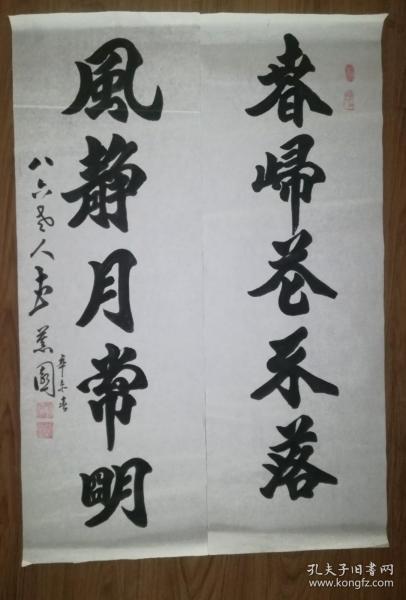 春歸花不落
風静月常明
八六老人
蕙園
辛未春
孔夫子旧书网
www.kongfz.com